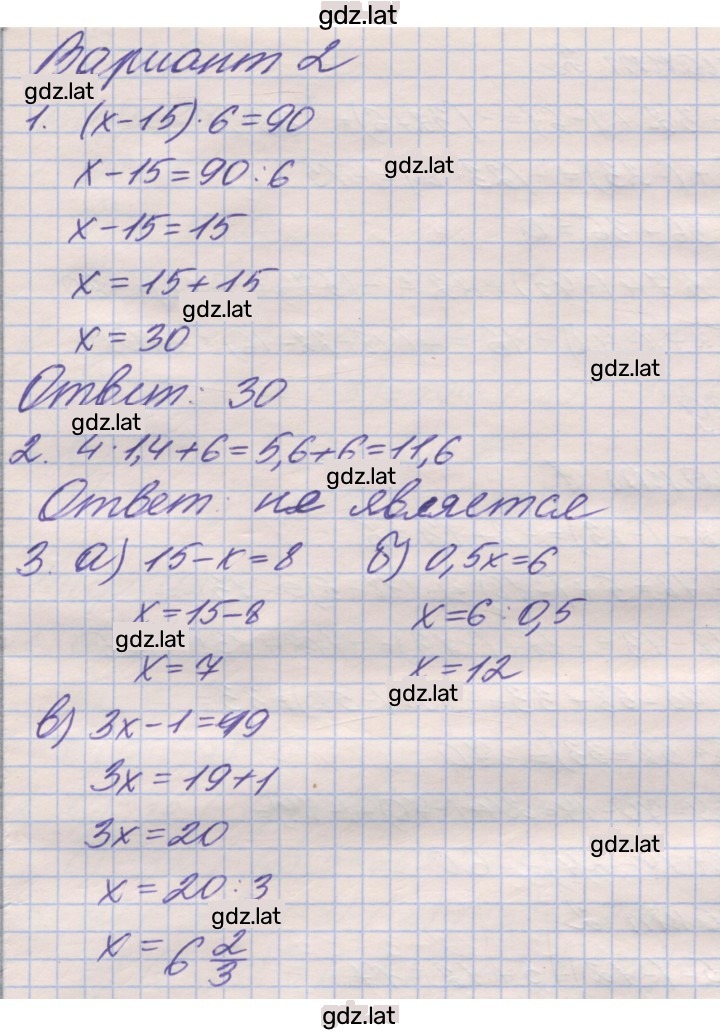 gdz.lat
Вариант 2
gdz.lat
1. (x-15)·6=90
x-15=90:6
gdz.lat
x-15=15
x=15+15
gdz.lat
x=30
gdz.lat
Ответ: 30
gdz.lat
2. 4·1,4+6=5,6+6=11,6
gdz.lat
Ответ: не является
3. а) 15-x=8 б) 0,5x=6
x=15-8 x=6:0,5
gdz.lat
x=7 x=12
gdz.lat
в) 3x-1=19
3x=19+1
3x=20
gdz.lat
x=20:3
gdz.lat
x=6 2/3
gdz.lat